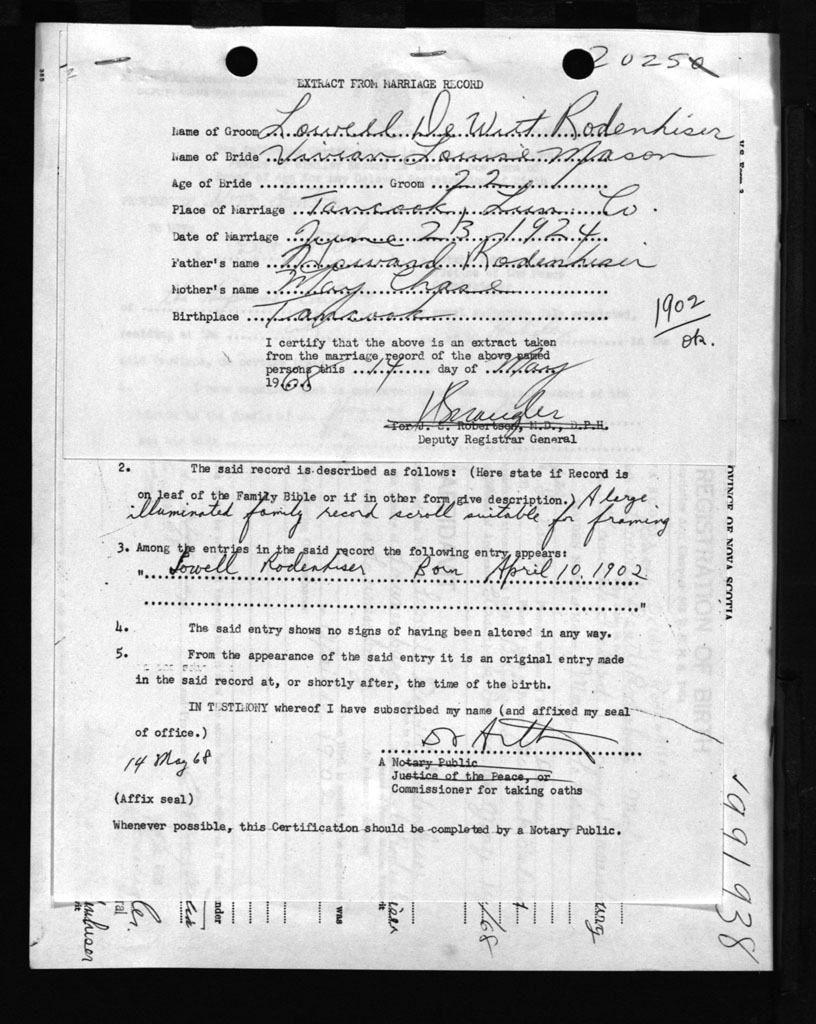 20250
EXTRACT FROM MARRIAGE RECORD
Name of Groom Lowell De Witt Rodenhiser
Name of Bride Vivian Louise Mason
Age of Bride .................... Groom ...22...........
Place of Marriage Tancook, Lun. Co.
Date of Marriage June 23, 1924
Father's name Howard Rodenhiser
Mother's name May Chase
Birthplace Tancook
1902
ok.
I certify that the above is an extract taken
from the marriage record of the above named
persons this ...14..... day of ..May
1968.
for J. S. Robertson, M.D., D.P.H.
Deputy Registrar General
2. The said record is described as follows: (Here state if Record is
on leaf of the Family Bible or if in other form, give description.) A large
illuminated family record scroll suitable for framing
3. Among the entries in the said record the following entry appears:
"Lowell Rodenhiser Born April 10, 1902
"
4. The said entry shows no signs of having been altered in any way.
5. From the appearance of the said entry it is an original entry made
in the said record at, or shortly after, the time of the birth.
IN TESTIMONY whereof I have subscribed my name (and affixed my seal
of office.)
14 May 68
A Notary Public
Justice of the Peace, or
Commissioner for taking oaths
(Affix seal)
Whenever possible, this Certification should be completed by a Notary Public.
OVINCE OF NOVA SCOTIA
REGISTRATION OF BIRTH
991938
was
nder
ral
/68